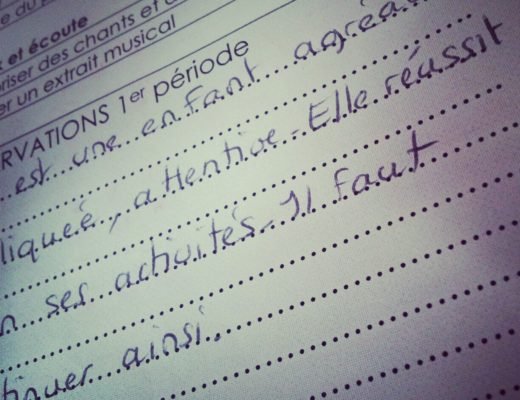 et écoute
riser des chants et
er un extrait musical
RVATIONS 1er période
est une enfant agréa
liqueé, attentive. Elle réussit
n ses activités. Il faut
tinuer ainsi.